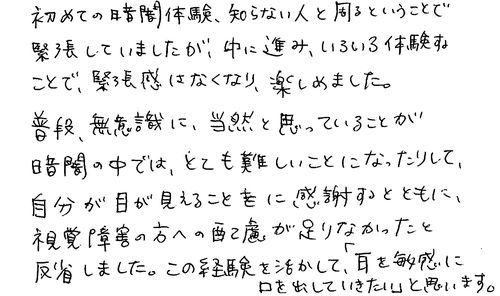 初めての暗闇体験、知らない人と周るということで
緊張していましたが、中に進み、いろいろ体験する
ことで、緊張感はなくなり、楽しめました。
普段、無意識に、当然と思っていることが
暗闇の中では、とても難しいことになったりして、
自分が目が見えることをに感謝するとともに、
視覚障害の方への配慮が足りなかったと
反省しました。この経験を活かして、「耳を敏感に
口を出していきたい」と思います。